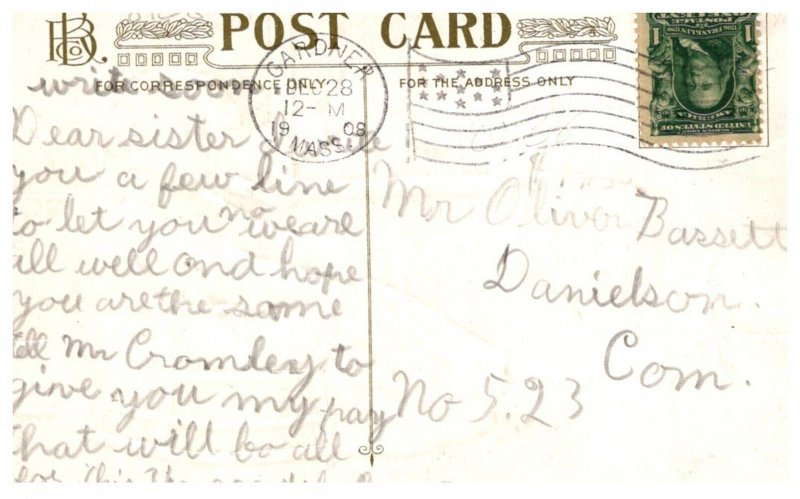 POST CARD
FOR CORRESPONDENCE ONLY
FOR THE ADDRESS ONLY
GARDNER
12- M
19 08
MASS.
1 1
write soon
Dear sister I write
you a few line
to let you no we are
all well and hope
you are the same
tell Mr Cromley to
give you my pay
that will be all
for this
Mr Oliver Bassett
Danielson.
Com.
No 5.23